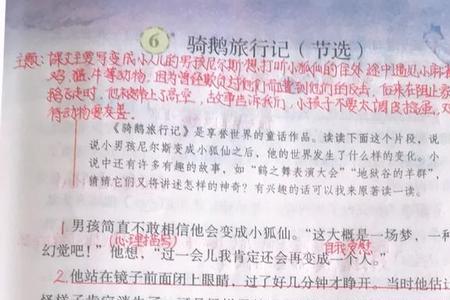 6 骑鹅旅行记（节选）
主题：课文主要写变成小人儿的男孩尼尔斯想打听小狐仙的住处，途中遇见小麻雀
鸡、猫、牛等动物，因为曾经欺负过他们而遭到他们的反击，后来在阻止
时，他被带上了高空，故事告诉我们，小孩子不要太调皮捣蛋，对
待动物要友善。
《骑鹅旅行记》是享誉世界的童话作品。读读下面这个片段，说
说小男孩尼尔斯变成小狐仙之后，他的世界发生了什么样的变化。小
说中还有许多有趣的故事，如“鹤之舞表演大会”“地狱谷的羊群”，
猜猜它们又将讲述怎样的神奇？有兴趣的话可以找来原著读一读。
1 男孩简直不敢相信他会变成小狐仙。“这大概是一场梦，一种
(心理描写)
幻觉吧！”他想，“过一会儿我肯定还会再变成一个人。”
自我安慰
2 他站在镜子前面闭上眼睛，过了好几分钟才睁开。当时他估